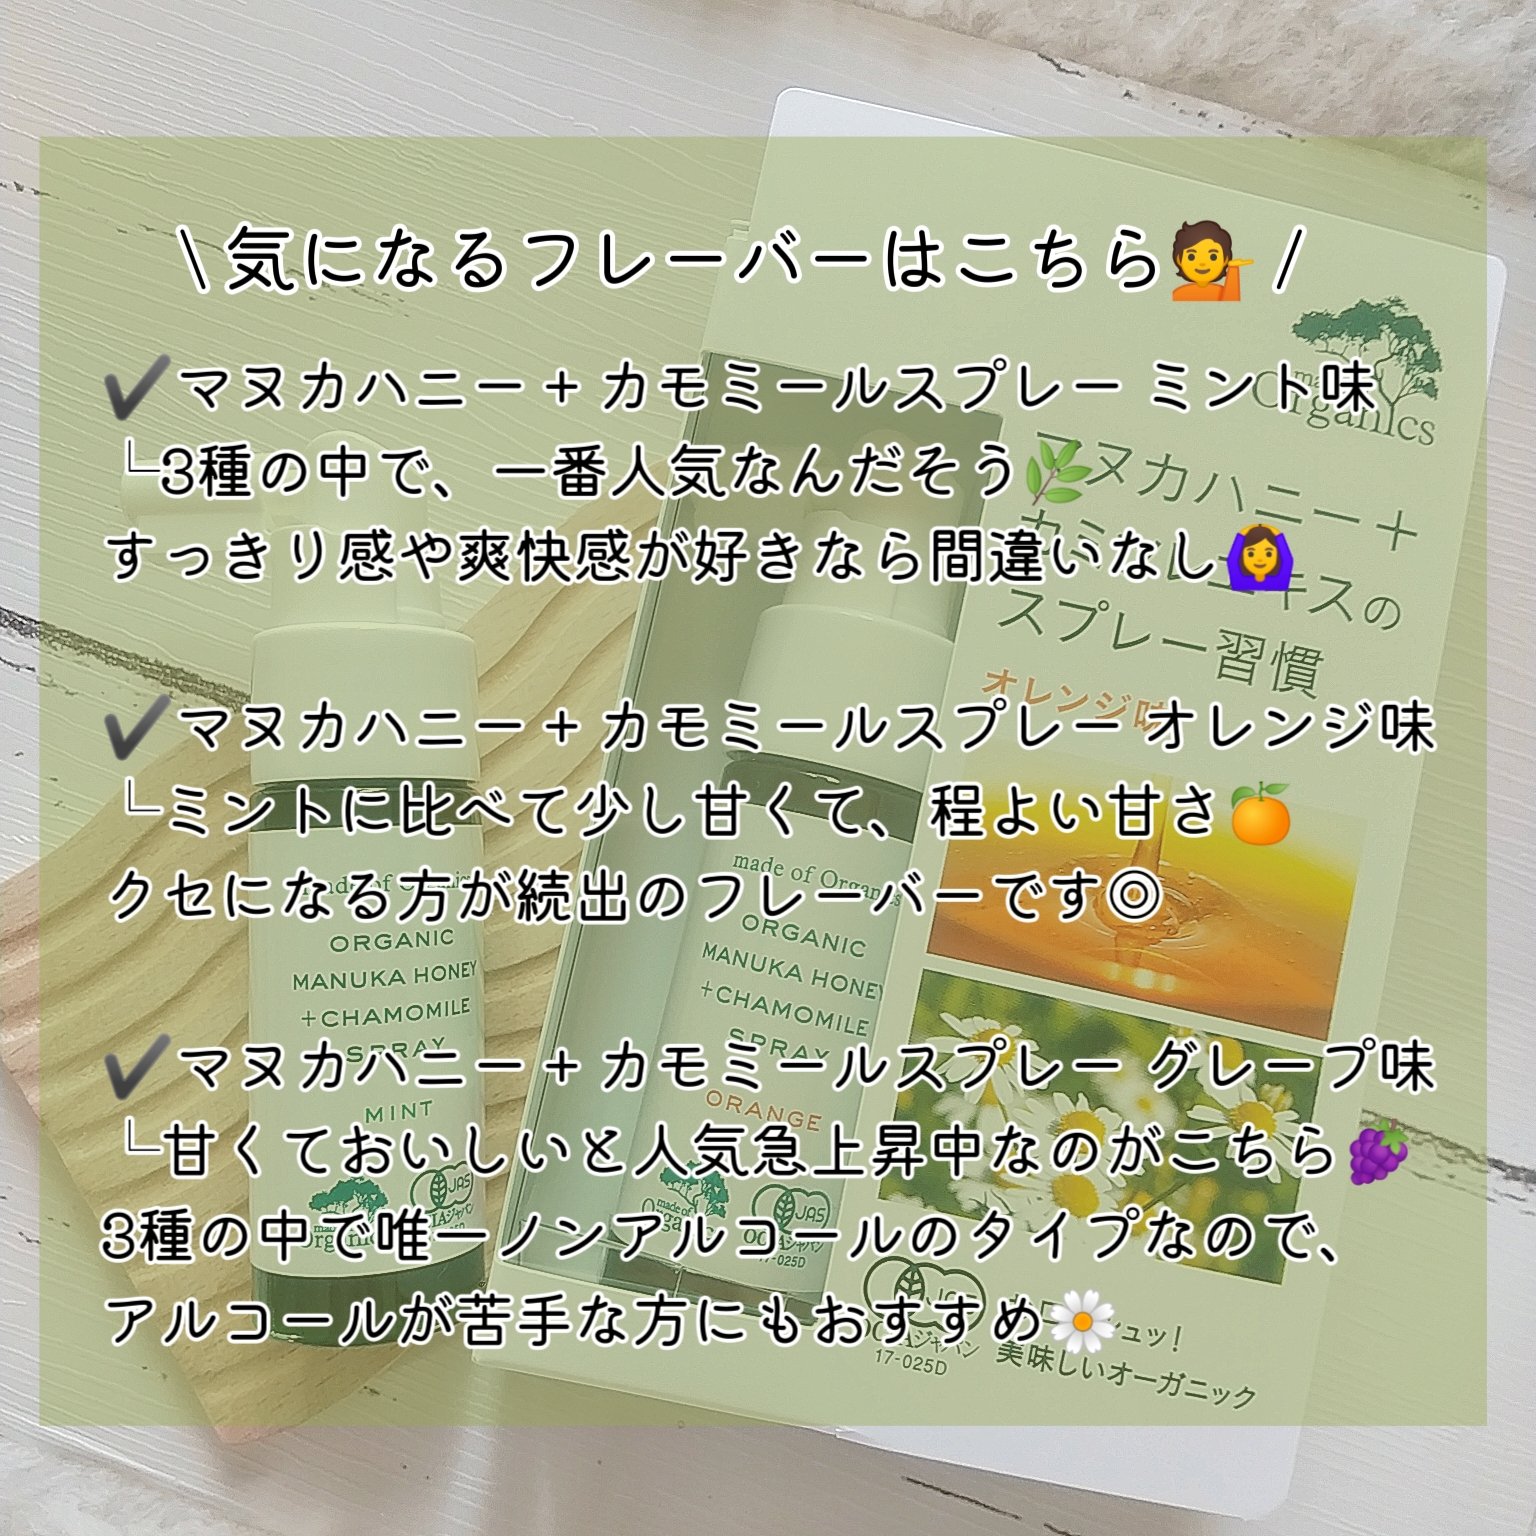 \ 気になるフレーバーはこちら💁 /
✔マヌカハニー + カモミールスプレー ミント味
└3種の中で、一番人気なんだそう🌿
すっきり感や爽快感が好きなら間違いなし🙆‍♀️
✔マヌカハニー + カモミールスプレー オレンジ味
└ミントに比べて少し甘くて、程よい甘さ🍊
クセになる方が続出のフレーバーです◎
✔マヌカハニー + カモミールスプレー グレープ味
└甘くておいしいと人気急上昇中なのがこちら🍇
3種の中で唯一ノンアルコールのタイプなので、
アルコールが苦手な方にもおすすめ🌼
made of Organics
ORGANIC
MANUKA HONEY
+CHAMOMILE
SPRAY
MINT
JAS
made of Organics
ORGANIC
MANUKA HONEY
+CHAMOMILE
SPRAY
ORANGE
made of
Organics
JAS
OCIAジャパン
17-025D
Organics
マヌカハニー＋
スプレー習慣
オレンジ味
JAS
OCIAジャパン
17-025D
シュッ!
美味しいオーガニック